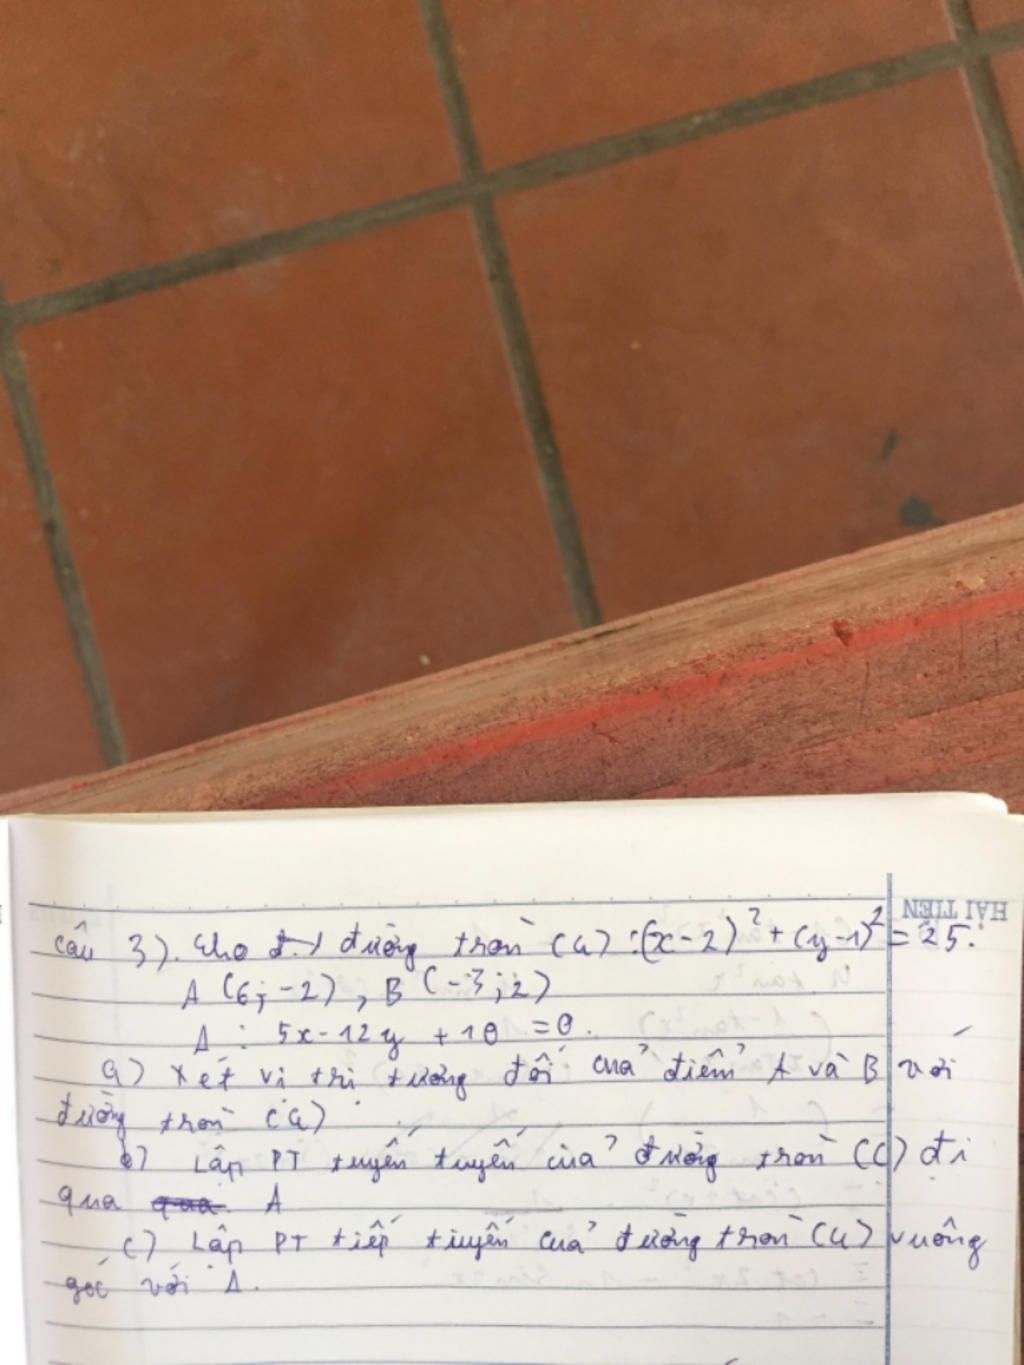 HẢI TIẾN
Câu 3). Cho đ.) đường tròn (C) : (x-2)² + (y-1)² = 25.
A (6; -2), B (-3; 2)
Δ : 5x - 12y + 10 = 0.
a) Xét vị trí tương đối của điểm A và B với
đường tròn (C).
b) Lập PT tuyến tuyến của đường tròn (C) đi
qua A
c) Lập PT tiếp tuyến của đường tròn (C) vuông
góc với Δ.